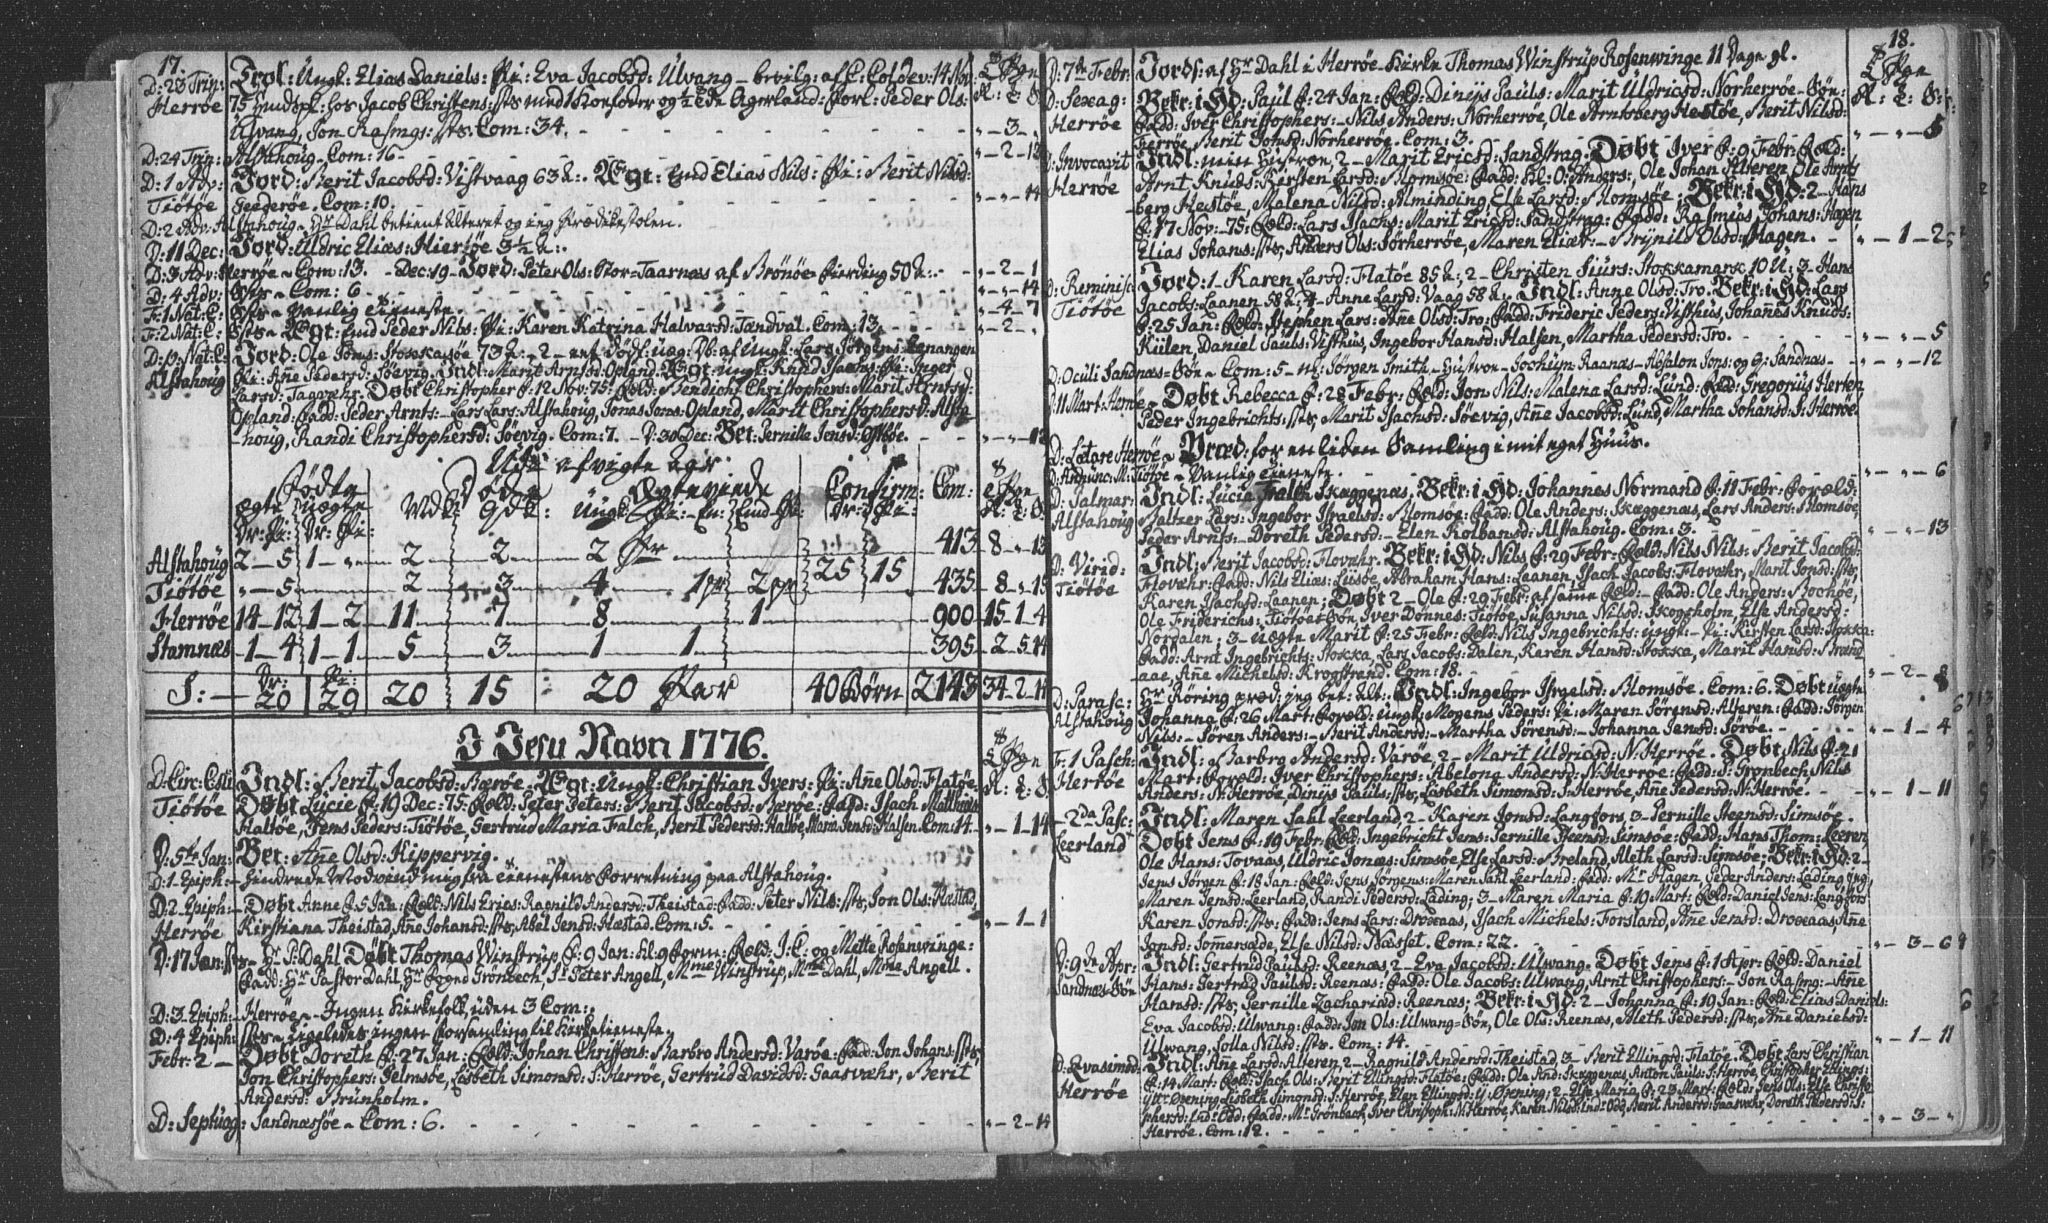 17.
D: 23 Trin: Trol: Ungk: Elias Daniels: Pi: Eva Jacobsd: Ulvang - bevilg: af C: Coldev: 14 Nov:
Herrøe 75 hos Jacob Christens: sts med 1 Koefoder og Agerland: Forl: Peder Ols:
Ulvang, Jon Rasmgs: sts. Com: 34. „-3-„
D: 24 Trin: Alstahoug - Com: 16 - „-2-12
D: 1 Adv: Jord: Berit Jacobsd: Vistvaag 63 A: Ægt: Elias Nils: Pi: Berit Nilsd:
Tiøtøe Com: 10. „-„-14
D: 2 Adv: Alstahoug - Hr Dahl betient Alteret og ieg Prædikestolen.
D: 11 Dec: Jord: Uldric Elias: 3½ A:
D: 3 Adv: Herrøe - Com: 13. - Dec: 19 - Jord: Peter Ols: Stor-Taarnæs af Brønøe-Fierding 50 A: „-2-1
D: 4 Adv: Sts - Com: 6 „-„-14
F: 1 Nat: C: Sts - Vanlig Tieneste. „-4-7
F: 2 Nat: C: Sts - Ægt: Peder Nils: Pi: Karen Katrina Halvarsd: Tændval. Com: 13. „-2-„
D: p: Nat: C: Jord: Ole Joms: Stokkasøe 73 A: 2 - et dødf: uæg: Pb: af Ungk: Lars Jörgens:
Alstahoug Pi: Ane Pedersd: Søevig. Indl: Marit Arnsd: Opland: Ægt: Ungk: Knud Isachs: Pi: Inger
Larsd: Tagvæhr. Døbt Christopher f: 12 Nov: 75: Feld: Bendion Christophers: Marit Arntsd:
Opland: Fadd: Peder Arnts - Lars Lars: Alstahoug, Jonas Jons: Opland, Marit Christophersd: Alsta
-houg, Randi Christophersd: Søevig. Com: 7. - D: 30 Dec: Bet: Pernille Jensd: „-„-12
Udi afvigte Aar
Fødte Døde Ægteviede Confirm: Com:
ægte uægte Mdk: Qdk: Ungk: Pi: En: Pi: Dr: Pi:
Dr: Pi: Dr: Pi:
Alstahoug 2-5 1-„ 2 2 2 Pr 413 8-„-13
Tiøtøe „-5 2 3 4 1 pr 2 pr 25 15 435 8-„-15
Herrøe 14-12 1-2 11 7 8 1 900 15-1-4
Stamnæs 1-4 1-1 5 3 1 1 395 2-5-14
S: - Dr: 20 Pi: 29 20 15 20 Par 40 Børn 2143 34-2-14
I Jesu Navn 1776.
D: Circ: Csti Indl: Berit Jacobsd: Bærøe. Ægt: Ungk: Christian Ivers: Pi: Ane Olsd: Flatøe.
Tiøtøe Døbt Lucie f: 19 Dec: 75: Feld: Peter Peters: Berit Jacobsd: Bærøe: Fadd: Isach Mathias
Haltøe, Jens Peders: Tiøtøe, Gertrud Maria Falck, Berit Pedersd: Haltøe, Maria Jensd: Halsen. Com: 14. „-1-14
D: 5te Jan: Bet: Ane Olsd: Kippervig.
D: 1 Epiph: hindrede Modvend mig fra Tienestens Forretning paa Alstahoug.
D: 2 Epiph: Døbt Anne f: 5 Jan: Feld: Nils Erics: Ragnild Andersd: Theistad: Fadd: Peter Nils: sts, Jon Ols: Hæstad,
Herrøe Kirstiana Theistad, Ane Johansd: sts, Abel Jensd: Hæstad. Com: 5. „-1-1
D: 17 Jan: sts - Hr P: Dahl Døbt Thomas Winstrup f: 9 Jan: kl: 9 form: Feld: J: C: og Mette Rosenwinge:
Fadd: Hr Pastor Dahl, Hr Grönbech, Sr Peter Angell, Mme Winstrup, Mme Dahl, Mme Angell.
D: 3 Epiph: Herrøe - Ingen Kirkefolk, uden 3 Com:
D: 4 Epiph: sts - Ligeledes ingen Forsamling til Kirketieneste.
Febr: 2 - Døbt Doreth f: 27 Jan: Feld: Johan Christens: Barbro Andersd: Varøe: Fadd: Jon Johans: sts,
Jon Christophers: Gelmsøe, Lisbeth Simonsd: S: Herrøe, Gertrud Davidsd: Gaasvæhr, Berit
Andersd: Brunholm.
D: Septuag: Sandnæssøe - Com: 6. „-2-14
18.
D: 7de Febr: Jords: af Hr Dahl i Herrøe Kirke Thomas Winstrup Rosenwinge 11 Dage gl.
D: Sexag: Bekr: i HD: Paul f: 24 Jan: Feld: Dinys Pauls: Marit Uldricsd: Norherrøe - Søn:
Herrøe Fadd: Iver Christophers: - Nils Anders: Norherrøe, Ole Arntsberg Hestøe, Berit Nilsd:
Herrøe, Berit Jonsd: Norherrøe. Com: 3. „-„-5
D: Invocavit Indl: min Hustroe, 2 - Marit Ericsd: Sandstrag. Døbt Iver f: 9 Febr: Feld:
Herrøe Arnt Knuds: Kirsten Larsd: Blomsøe: Fadd: Hl: O: Anders:, Ole Johan Alteren, Ole Arnts
berg Hestøe, Malena Nilsd: Alminding, Else Larsd: Blomsøe; Bekr: i HD: 2 - Hans
f: 17 Nov: 75: Feld: Lars Isachs: Marit Ericsd: Sandstrag: Fadd: Rasmus Johans: Hagen
Elias Johans: sts, Anders Ols: Sørherrøe, Maren Eliæd: - Brynild Olsd: Hagen. „-1-2
D: Reminisc: Jord: 1 - Karen Larsd: Flatøe 85 A: 2 - Christen Siurs: Stokkamark 10 U; 3 - Hans
Tiøtøe Jacobs: Laanen 58 A: 4 - Anne Larsd: Vaag 58 A: Indl: Anne Olsd: Tro. Bekr: i HD: Lars
f: 25 Jan: Feld: Stephen Lars: Ane Olsd: Tro: Fadd: Frideric Peders: Visthus, Johanes Knuds:
Kiilen, Daniel Pauls: Visthus, Ingebor Hansd: Halsen, Martha Pedersd: Tro. „-„-5
D: Oculi Sandnæs-Søe - Com: 5 - nl: Jörgen Smith - Hustroe - Jochum Raanæs - Absalon Jons: og Q: Sandnæs „-„-12
D: 11 Mart: Herrøe - Døbt Rebecca f: 28 Febr: Feld: Jon Nils: Malena Larsd: Lund: Fadd: Gregorius Herten,
Peder Ingebrichts: sts, Marit Isachsd: Søevig, Ane Jacobsd: Lund, Martha Johansd: S: Herrøe.
D: Lætare Herrøe - Præd: for en liden Samling i mit eget Huus.
D: Andunc: M: Tiøtøe - Vanlig Tieneste. „-„-6
D: Palmar: Indl: Lucia Falch Skæggenæs. Bekr: i HD: Johannes Normand f: 11 Febr: Foræld:
Alstahoug Baltzer Lars: Ingebor Israelsd: Blomsøe: Fadd: Ole Anders: Skæggenæs, Lars Anders: Blomsøe
Peder Arnts - Doreth Pedersd: - Elen Kolbansd: Alstahoug. Com: 3. „-„-13
D: Virid: Indl: Berit Jacobsd: Flovæhr. Bekr: i HD: Nils f: 29 Febr: Feld: Nils Nils: Berit Jacobsd:
Tiøtøe Flovæhr: Fadd: Nils Elias: Luusøe, Abraham Hans: Laanen, Isach Jacobs: Flovæhr, Marit Jonsd: sts,
Karen Isachsd: Laanen; Døbt 2 - Ole f: 29 Febr: af same Feld: - Fadd: Ole Anders: Bochøe,
Ole Friderichs: Tiøtøe-Søn, Iver Dønnes: Tiøtøe, Susanna Nilsd: Skogsholm, Else Andersd:
Nordalen; 3 - Uægte Marit f: 25 Febr: Feld: Nils Ingebrichts: ungk: - Pi: Kirsten Larsd: Stokka:
Fadd: Arnt Ingebrichts: Stokka, Lars Jacobs: Dalen, Karen Hansd: Stokka, Marit Hansd: Strand
aae, Ane Michelsd: Krogstrand. Com: 18. „-2-8
D: Parasc: Hr Röring præd: jeg bet: Alt: Indl: Ingebor Isrgelsd: Blomsøe. Com: 6. Døbt uægte
Alstahoug Johanna f: 26 Mart: Foræld: ungk: Mogens Peders: Pi: Maren Sørensd: Alteren: Fadd: Jörgen
Nils: - Søren Anders: - Berit Andersd: - Martha Sörensd: - Johanna Jensd: Sørøe. „-1-4
F: 1 Pasch: Indl: Barbro Andersd: Varøe, 2 - Marit Uldricsd: N: Herrøe. Døbt Nils f: 21
Herrøe Mart: Foræld: Iver Christophers: Abelong Andersd: N: Herrøe: Fadd: S: Gronbech, Nils
Anders: N: Herrøe, Dinys Pauls: sts, Lisbeth Simonsd: S: Herrøe, Ane Pedersd: N: Herrøe. „-1-11
- 2da Pasc: Indl: Maren Sahl Leerland, 2 - Karen Jonsd: Langfors, 3 - Pernille Steensd: Simsøe.
Leerland Døbt Jens f: 19 Febr: Feld: Ingebricht Jens: Pernille Steensd: Simsøe: Fadd: Hans Thom: Leeren,
Ole Hans: Tovaas, Uldric Jonæs: Simsøe, Else Larsd: Breland, Aleth Larsd: Simsøe; Bekr: i HD: 2 -
Jens Jörgen f: 18 Jan: Feld: Jens Jörgens: Maren Sahl Leerland: Fadd: Mr Hagen, Peder Anders: Lading, Ing
Maren Jensd: Leerland, Randi Pedersd: Lading; 3 - Maren Maria f: 19 Mart: Feld: Daniel Jens: Langfors
Karen Jonsd: sts: Fadd: Jens Lars: Drexaas, Isach Michels: Forsland, Ane Jensd: Drexaas, Ane
Jonsd: Somersæde, Else Nilsd: Næsset. Com: 22. „-3-6
D: 9de Apr: Indl: Gertrud Paulsd: Reenæs, 2 - Eva Jacobsd: Ulwang. Døbt Jens f: 1 Apr: Feld: Daniel
Sandnæs-Søn Hans: Gertrud Paulsd: Reenæs: Fadd: Ole Jacobs: Ulwang, Arnt Christophers: - Jon Rasmg: - Ane
Hansd: sts, Pernille Zachariæd: Reenæs; Bekr: i HD: 2 - Johanna f: 19 Jan: Feld: Elias Daniels:
Eva Jacobsd: Ulwang: Fadd: Jon Ols: Ulwang-Søn, Ole Ols: Reenæs, Aleth Pedersd: sts, Ane Danielsd:
Ulwang, Lolla Nilsd: sts. Com: 14. „-1-11
D: Qvasimod: Indl: Ane Larsd: Alteren, 2 - Ragnild Andersd: Theistad, 3 - Berit Ellingsd: Flatøe. Døbt Lars Christian
Herrøe f: 14 Mart: Feld: Isach Ols: Berit Ellingsd: Flatøe: Fadd: Ole And: Skæggenæs, Anton Pauls: S: Herrøe, Christopher Ellings:
Yttr Øxening, Lisbeth Simonsd: S: Herrøe, Elen Ellingsd: Y: Øxening; 2 - Else Maria f: 23 Mart: Feld: Jens Ols: Else Christo
phersd: Indr: Odd: Fadd: Mr Grönbech, Iver Christoph: N: Herrøe, Karen Nilsd: Ind: Odd, Berit Andersd: Gaasvæhr, Doreth Pedersd: S:
Herrøe. Com: 12. „-3-„